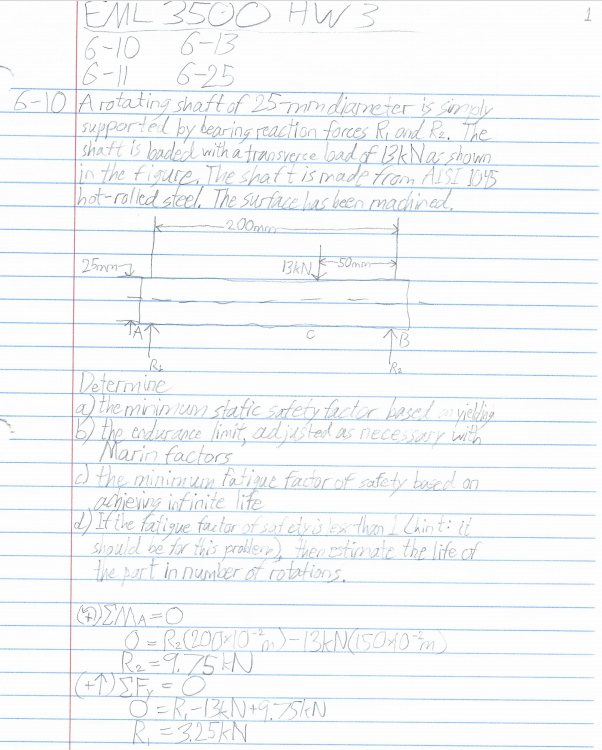 EML 3500 HW 3
1
6-10 6-13
6-11 6-25
6-10 A rotating shaft of 25-mm diameter is simply
supported by bearing reaction forces R1 and R2. The
shaft is loaded with a transverse load of 13kN as shown
in the figure. The shaft is made from AISI 1045
hot-rolled steel. The surface has been machined.
200mm
25mm 13kN 50mm
A C B
R1 R2
Determine
a) the minimum static safety factor based on yielding
b) the endurance limit, adjusted as necessary with
Marin factors
c) the minimum fatigue factor of safety based on
achieving infinite life
d) If the fatigue factor of safety is less than 1 (hint: it
should be for this problem), then estimate the life of
the part in number of rotations.
(+) ΣMA = 0
0 = R2(200×10⁻²m) - 13kN(150×10⁻²m)
R2 = 9.75kN
(+↑) ΣFy = 0
0 = R1 - 13kN + 9.75kN
R1 = 3.25kN